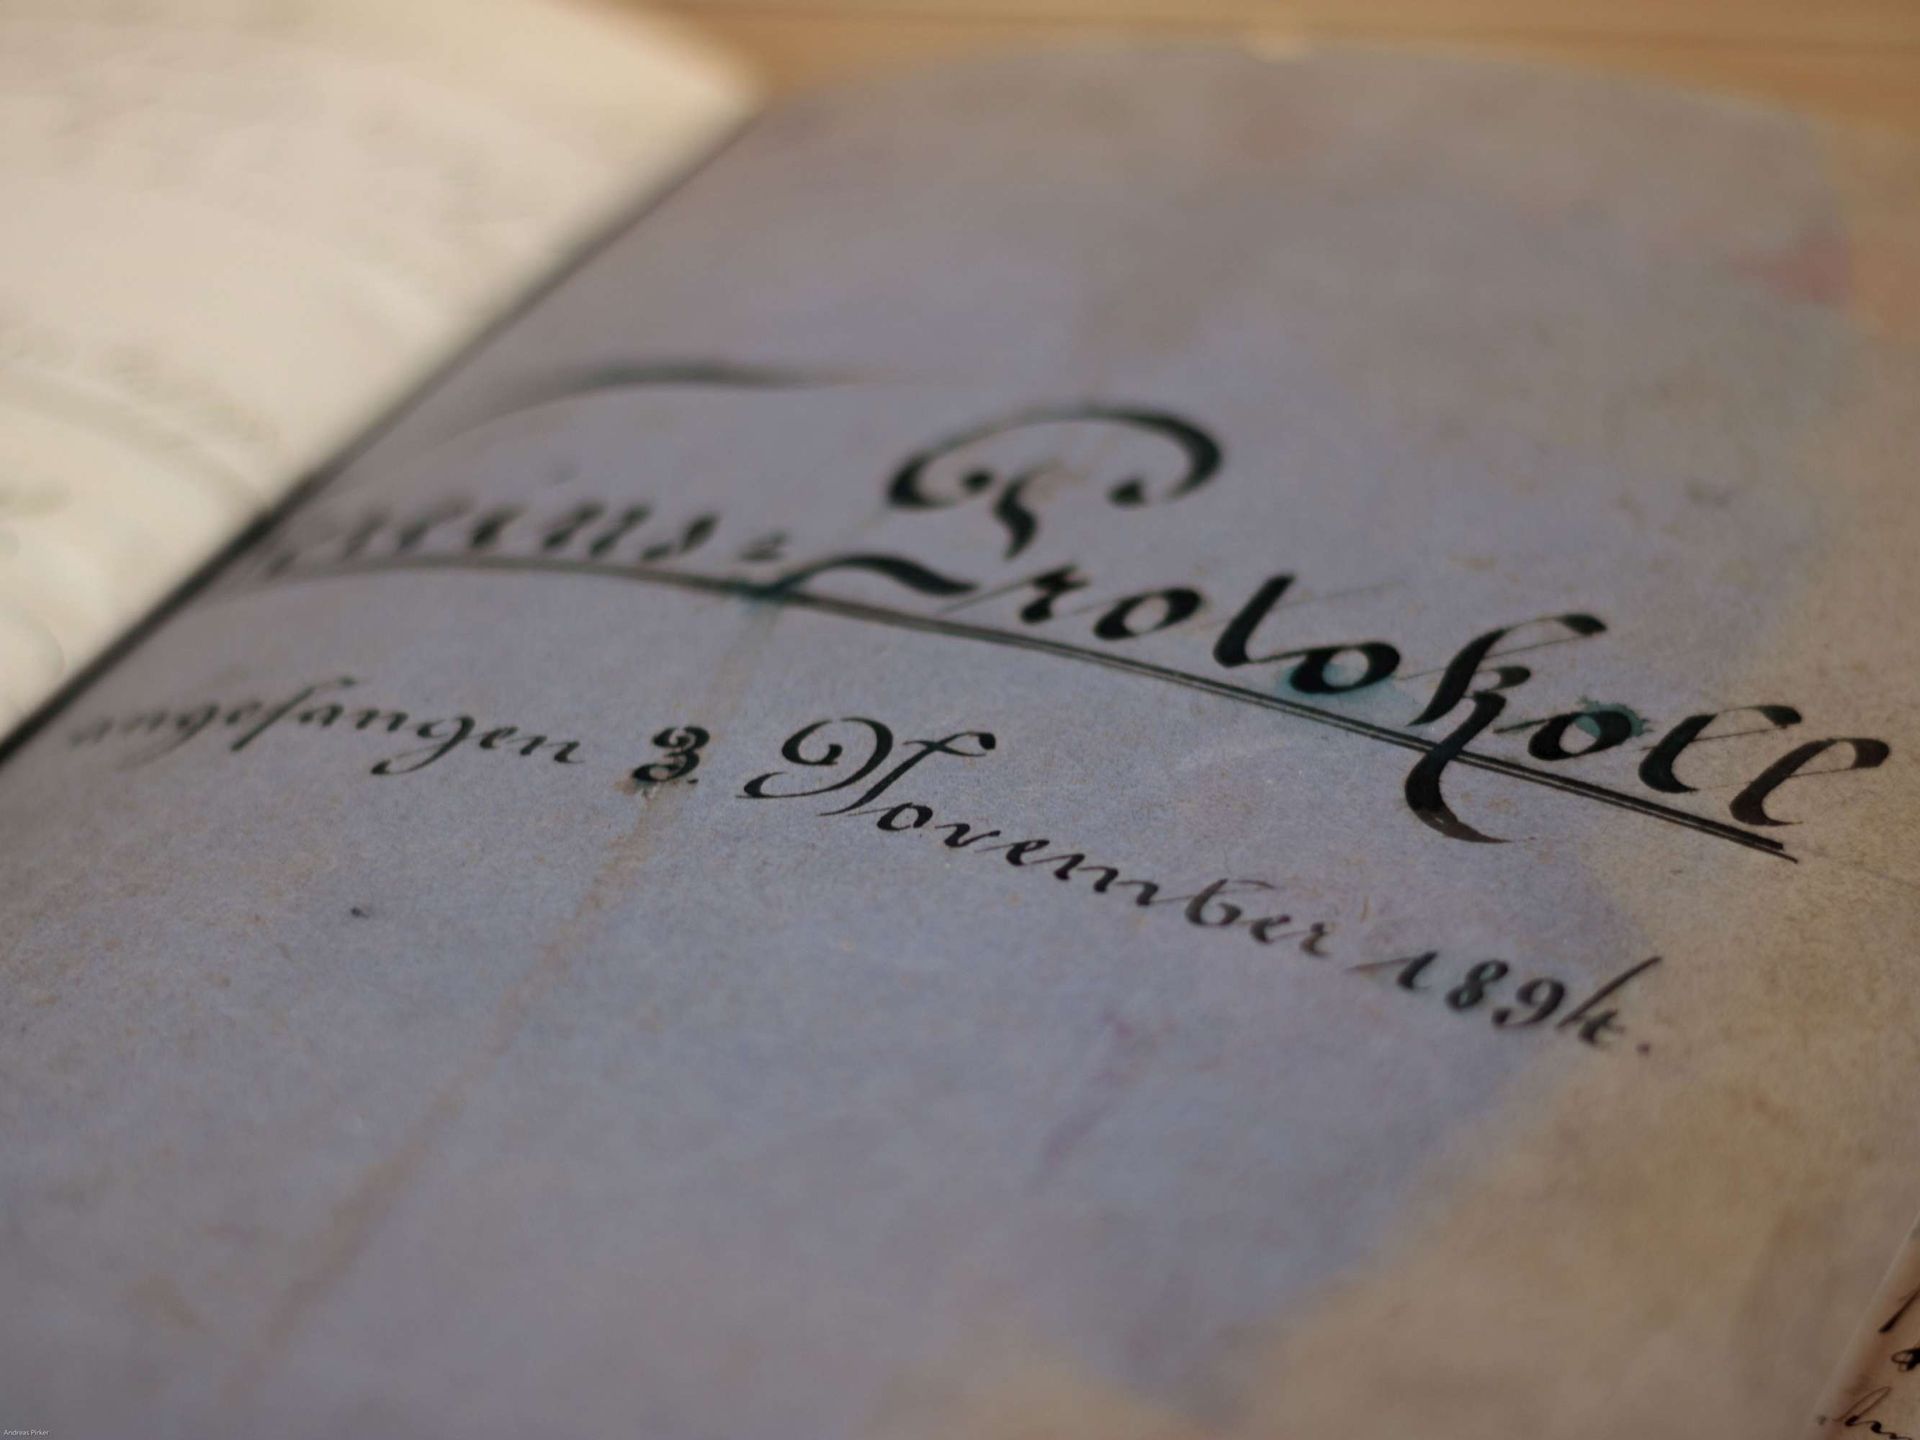 Vereins=Protokoll
angefangen 3. November 1894.
Andreas Pirker